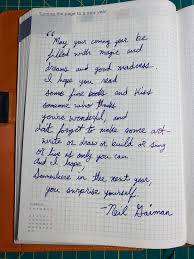 Turning the page to a new year
"
May your coming year be
filled with magic and
dreams and good madness.
I hope you read
some fine books and kiss
someone who thinks
you're wonderful, and
don't forget to make some art -
write or draw or build or sing
or live as only you can.
And I hope,
Somewhere in the next year,
you surprise yourself.
- Neil Gaiman